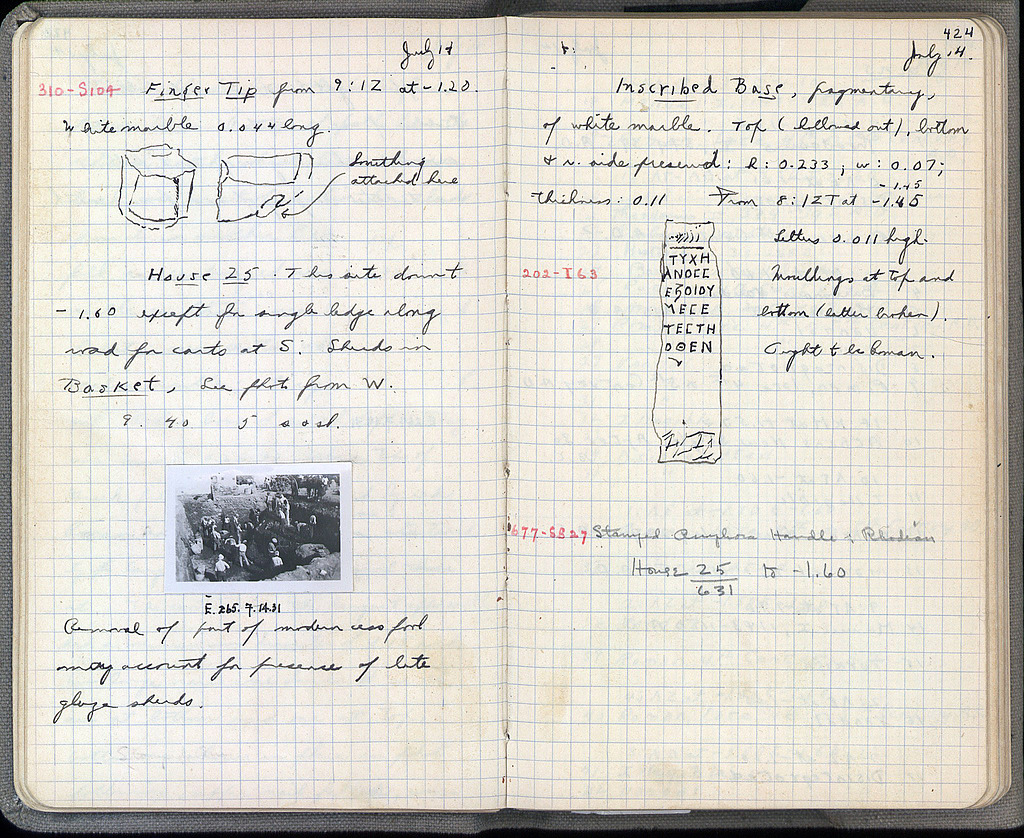 July 14
310-S104 Finger Tip from 9:ΙΖ at -1.20.
White marble 0.044 long.
Something
attached here
House 25. This site down t
-1.60 except for single ledge along
road for carts at S. Sherds in
Basket, See photo from W.
9. 40 5
E.265.7.14.31
Removal of part of modern cess pool
may account for presence of late
glaze sherds.
424
July 14.
Inscribed Base, fragmentary,
of white marble. Top (hollowed out), bottom
& r. side preserved: h: 0.233; w: 0.07;
-1.45
thickness: 0.11 From 8:ΙΖ at -1.45
Letters 0.011 high.
202-I63
Mouldings at top and
bottom (latter broken).
Ought to be Roman.
ΤΥΧΗ
ΑΝΟCC
ΕΒΟΙΟΥ
ΜΕCΕ
ΤΕCΤΗ
ΟΘΕΝ
677-SS27 Stamped Amphora Handle: Rhodian
House 25 to -1.60
631